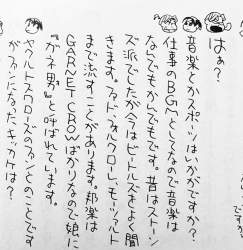 です。
はぁ?
音楽とかスポーツはいかがですか?
仕事のBGMとしてなので音楽は
なんでもかんでもです。昔はストーン
ズ派でしたが今はビートルズをよく聞
きます。ファド、フォルクローレ、モーツァルト
まで流すことがあります。邦楽は
GARNET CROWばかりなので娘に
『ガネ男』と呼ばれています。
ヤクルトスワローズのファンとのことです
がファンになった、キッカケは?